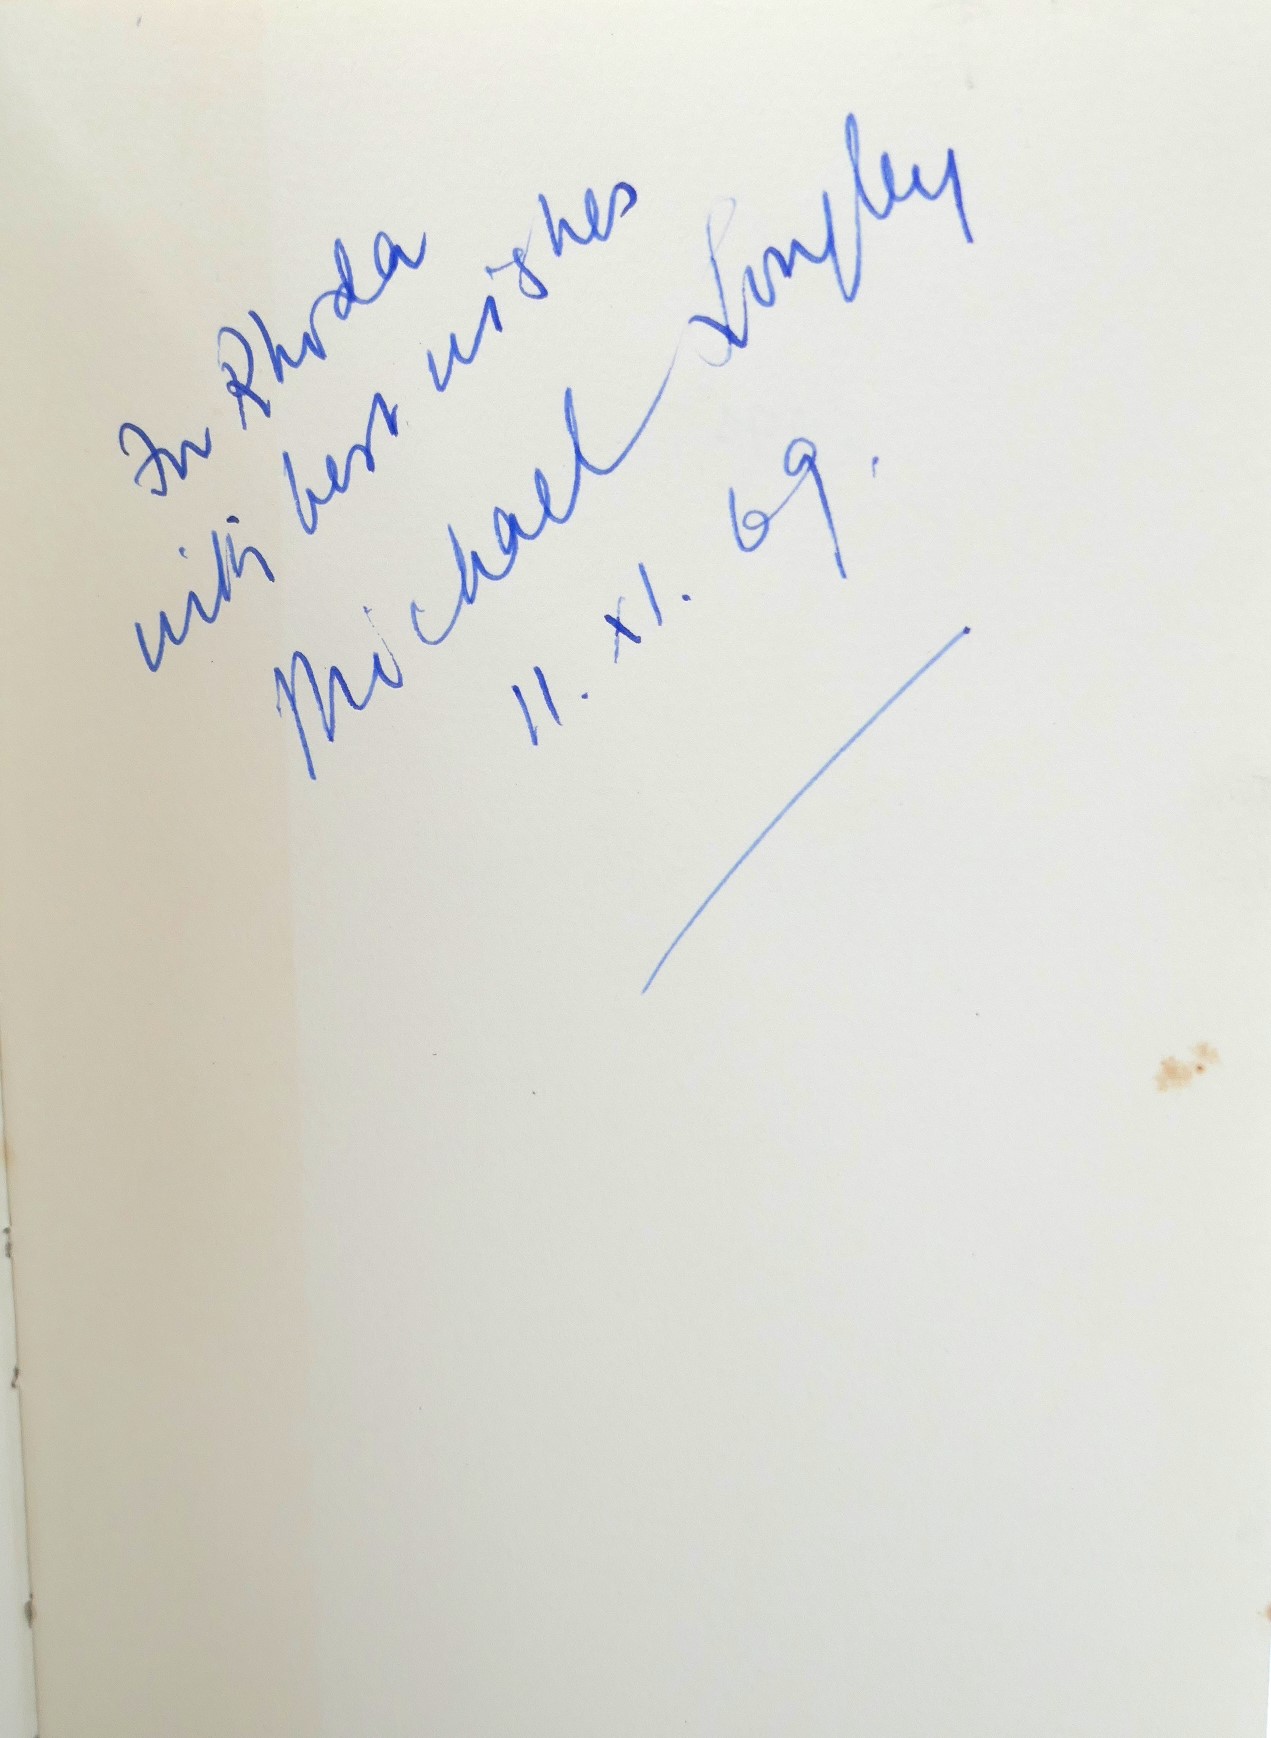 For Rhoda
with best wishes
Michael Longley
11. XI. 69.